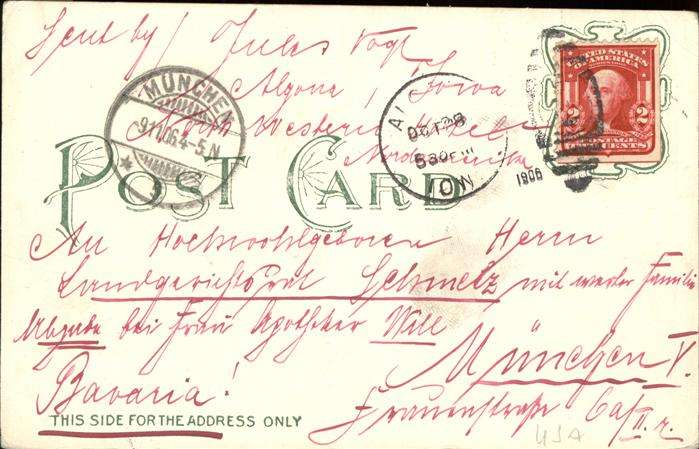 Sent by / Jules Vogt
Algona, Iowa
North Western Hotel
Nordamerika
MÜNCHEN
9.11.06.4-5.N
OCT 28
530 PM
ION
1906
UNITED STATES
OF AMERICA
2 2
POSTAGE
TWO CENTS
POST CARD
An Hochwohlgeboren Herrn
Landgerichtsrat Schmelz mit werter Familie
Abzugeben bei Frau Apotheker Will
München V.
Bavaria!
Frauenstraße 6a/II. r.
THIS SIDE FOR THE ADDRESS ONLY
USA